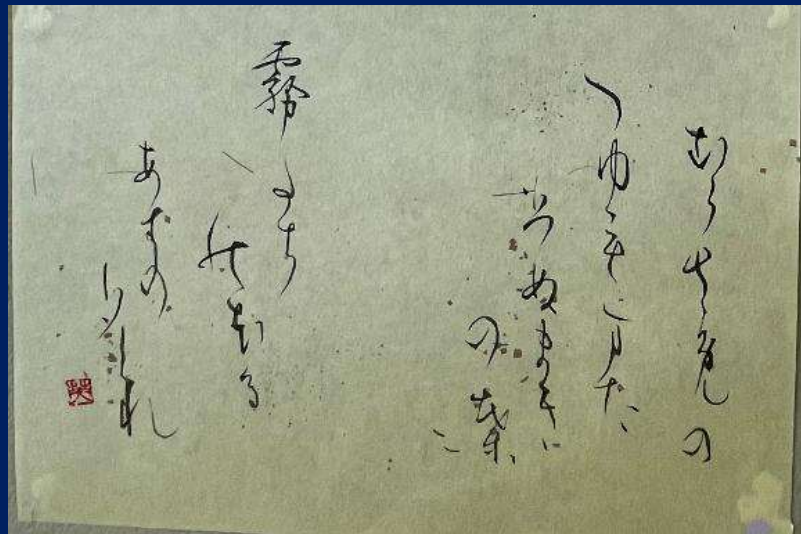 むらさめの
つゆもまだ
ひぬまき
の葉に
霧たち
のぼる
あきの
夕ぐれ